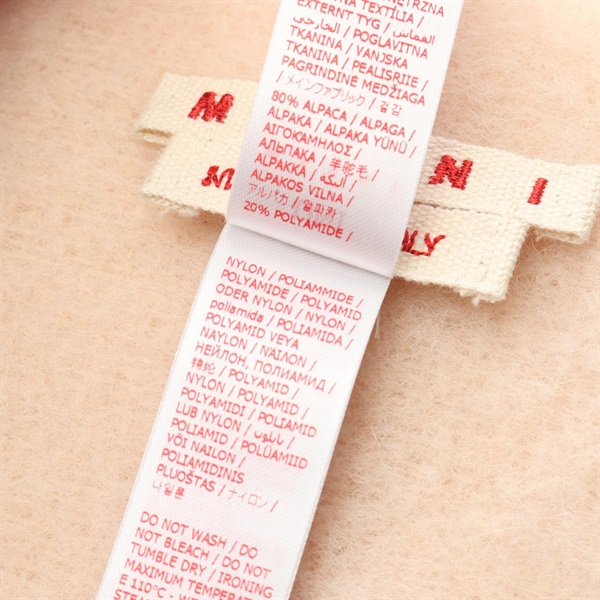 NA TEXTÍLIA /
EXTERNT TYG / القماش
الخارجي / POGLAVITNA
TKANINA / VANJSKA
TKANINA / PEALISRIIE /
PAGRINDINĖ MEDŽIAGA
/ メインファブリック / 겉감
80% ALPACA / ALPAGA /
ALPAKA / ALPAKA YÜNÜ /
ΑΙΓΟΚΑΜΗΛΟΣ /
АЛЬПАКА / 羊驼毛 /
ALPAKKA / ألبكه /
ALPAKOS VILNA /
アルパカ / 알파카 /
20% POLYAMIDE /
NYLON / POLIAMMIDE /
POLYAMIDE / POLYAMID
ODER NYLON / NYLON /
poliamida / POLIAMIDA /
POLYAMID VEYA
NAYLON / ΝΑΙΛΟΝ /
НЕЙЛОН, ПОЛИАМИД /
POLYAMID /
NYLON / POLYAMID /
POLYAMIDI / POLIAMID
LUB NYLON / نايلون /
POLIAMID / POLÜAMIID
VÕI NAILON /
POLIAMIDINIS
PLUOŠTAS / ナイロン /
나일론
DO NOT WASH / DO
NOT BLEACH / DO NOT
TUMBLE DRY / IRONING
MAXIMUM TEMPERAT
E 110°C -
M NI
M LY